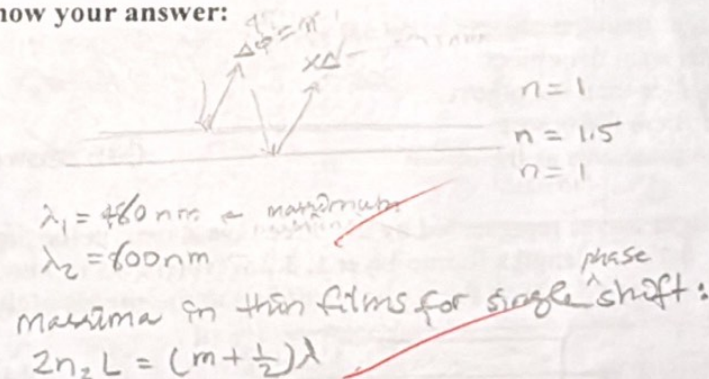 now your answer:
Δφ = π
n = 1
n = 1.5
n = 1
λ₁ = 480 nm ← maximum
λ₂ = 800nm
maxima in thin films for single ^phase shift:
2n₂ L = (m + ½)λ